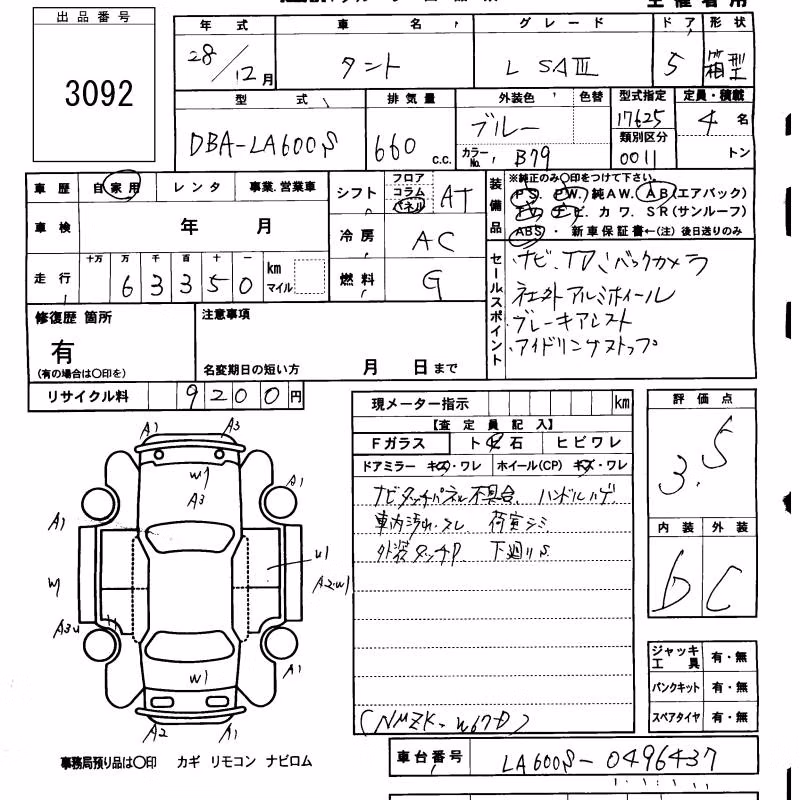 出品番号
3092
年式 車名 グレード ドア 形状
28/12月 タント L SAⅢ 5 箱型
型式 排気量 外装色 色替 型式指定 定員・積載
DBA-LA600S 660 c.c. ブルー 17625 4 名
カラーNo. B79 類別区分 0011 トン
車歴 自家用 レンタ 事業.営業車
車検 年 月
走行 十万 万 千 百 十 一
6 3 3 5 0 km マイル
シフト フロア コラム パネル AT
冷房 AC
燃料 G
装備品
※純正のみ〇印をつけて下さい。
P S. P W. 純AW. A B(エアバック)
T V. ナビ. カワ. SR(サンルーフ)
ABS・ 新車保証書←(注) 後日送りのみ
セールスポイント
ナビ、TV、バックカメラ
社外アルミホイール
ブレーキアシスト
アイドリングストップ
修復歴 箇所
有
(有の場合は〇印を)
注意事項
名変期日の短い方 月 日まで
リサイクル料 9200円
現メーター指示 km
【査定員記入】
Fガラス ト 石 ヒビワレ
ドアミラー キズ・ワレ ホイール(CP) キズ・ワレ
ナビタッチパネル不具合 ハンドルハゲ
車内汚れ・スレ 荷室シミ
外装タッチP 下廻りS
評価点
3.5
内装 外装
b C
A1 A3
W1
A3
A1 A1
U1
W1 A2W1
A3U
W1
A1 A1
A2 A1
ジャッキ工具 有・無
パンクキット 有・無
スペアタイヤ 有・無
(NMZK-W67D)
事務局預り品は〇印 カギ リモコン ナビロム
車台番号 LA600S-0496437